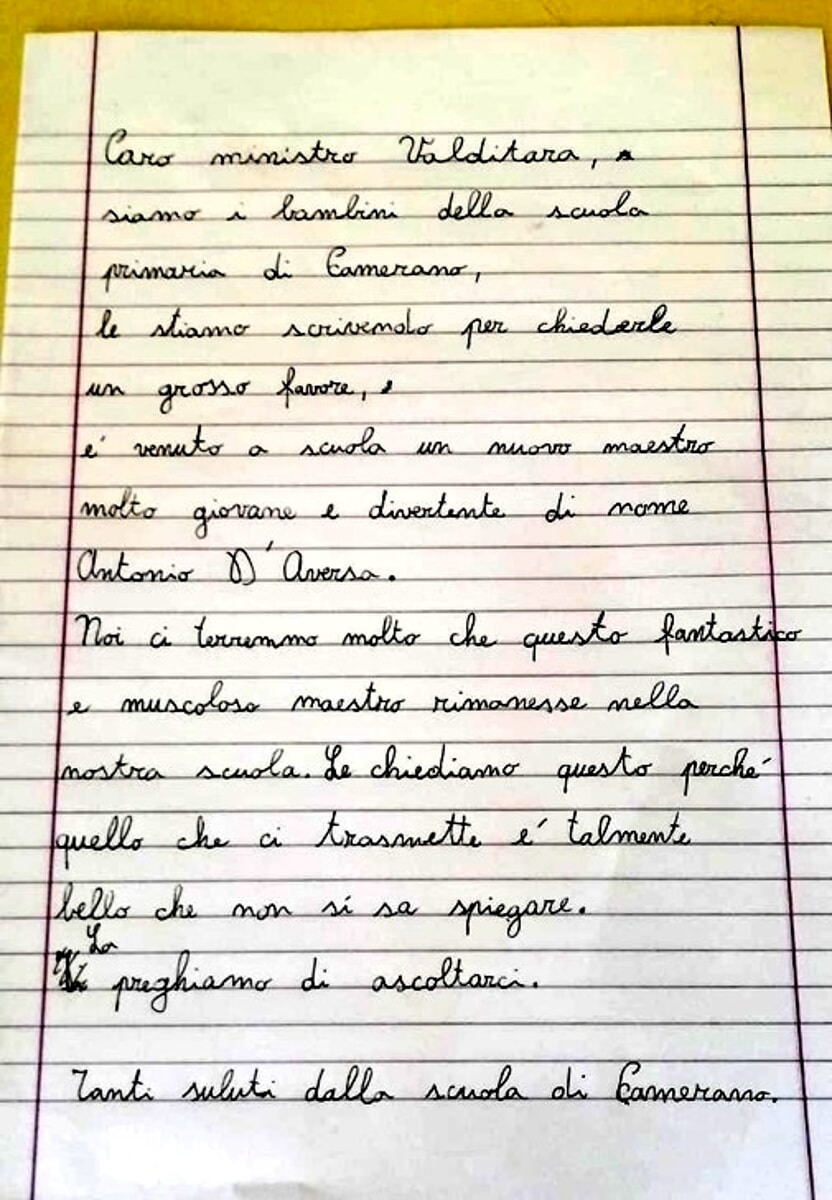 Caro ministro Valditara,
siamo i bambini della scuola
primaria di Camerano,
le stiamo scrivendo per chiederle
un grosso favore,
e' venuto a scuola un nuovo maestro
molto giovane e divertente di nome
Antonio D'Aversa.
Noi ci terremmo molto che questo fantastico
e muscoloso maestro rimanesse nella
nostra scuola. Le chiediamo questo perche'
quello che ci trasmette e' talmente
bello che non si sa spiegare.
La
preghiamo di ascoltarci.
Tanti saluti dalla scuola di Camerano.